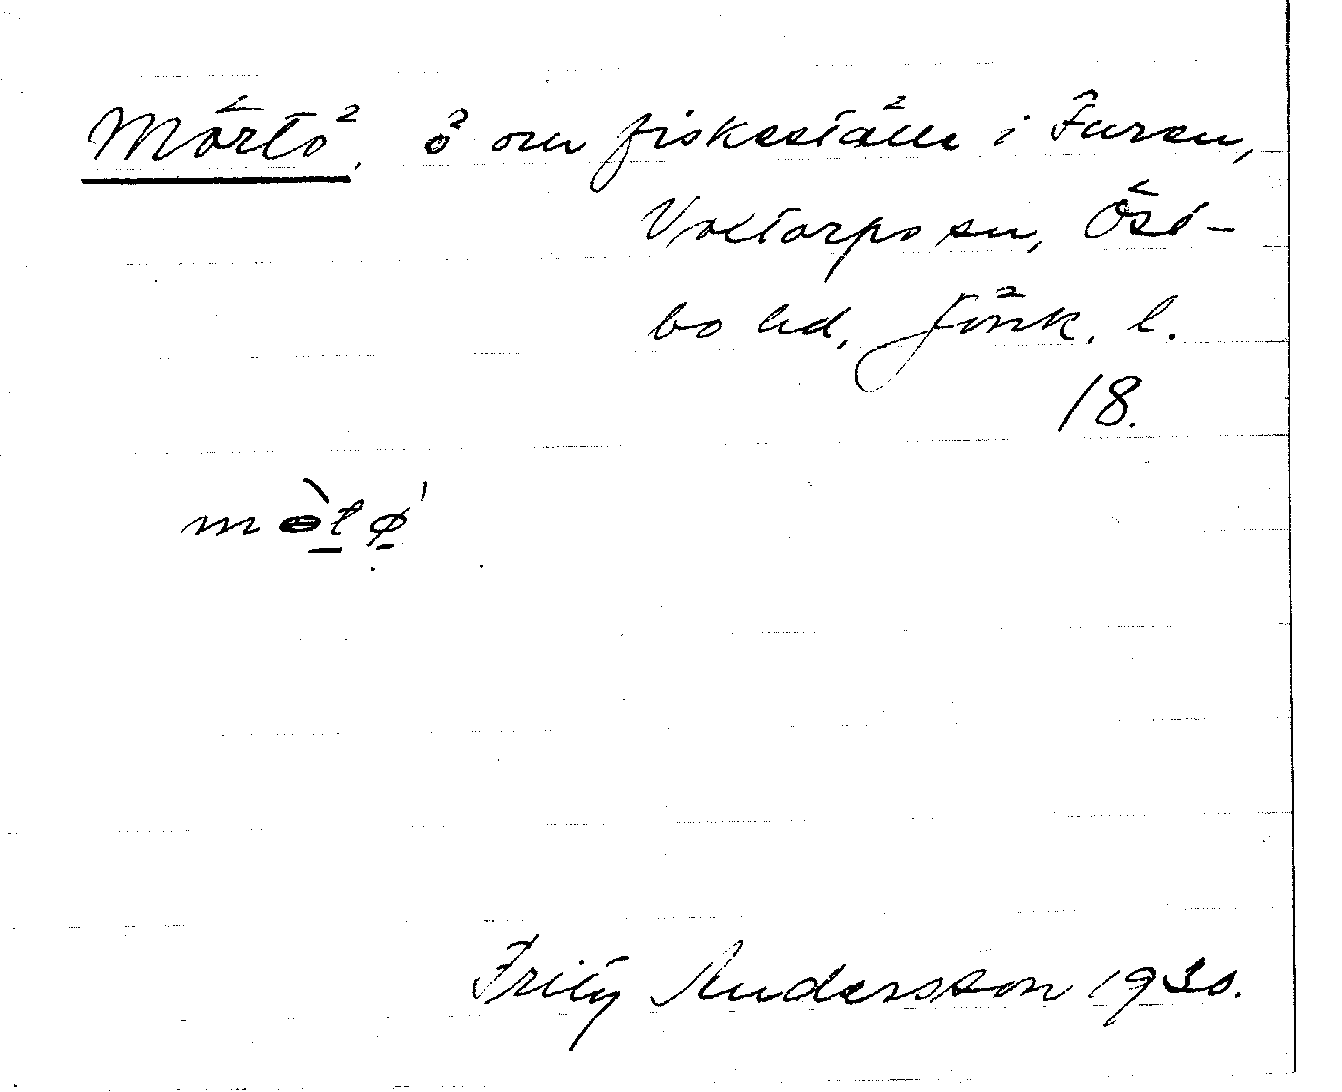 Mörtö, ö om fiskeställe i Furen,
Voxtorps sn, Öst-
bo hd, Jönk. l.
18.
Fritz Andersson 1930.